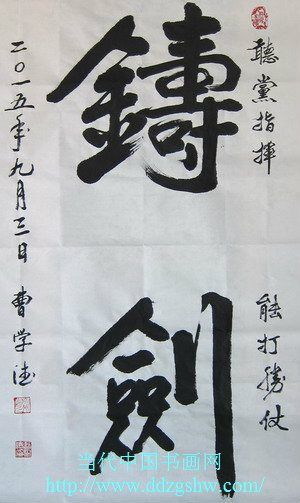 聽党指揮
能打勝仗
鑄劍
二〇一五年九月三日
曹学德
当代中国书画网
http://www.ddzgshw.com/